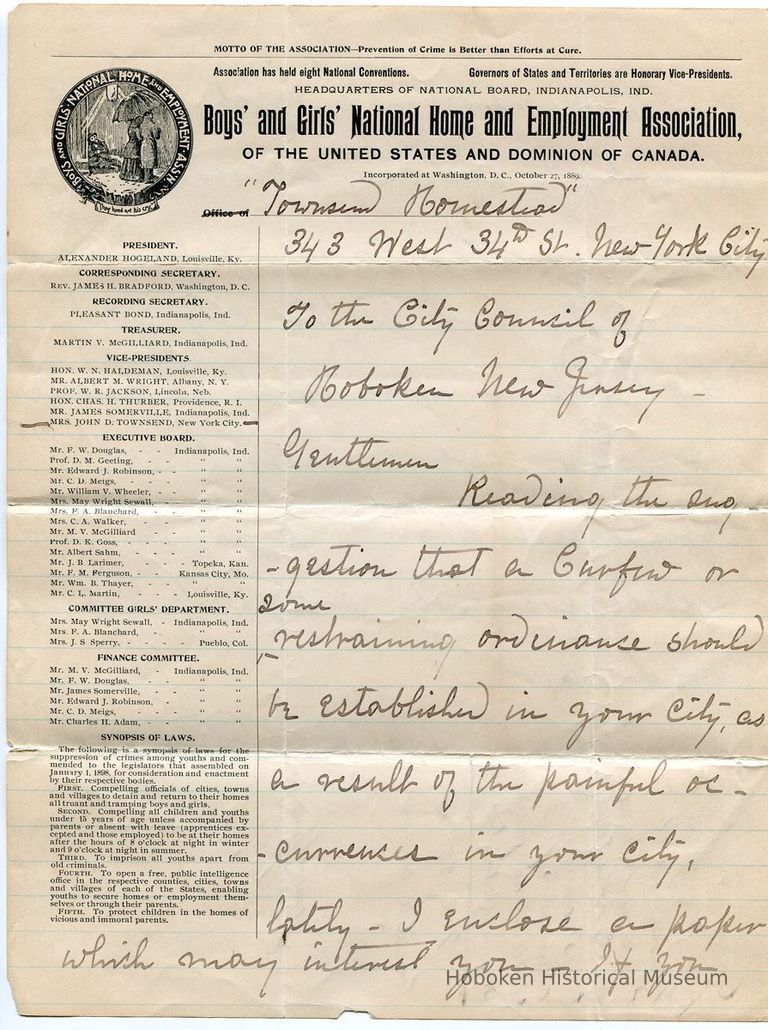 MOTTO OF THE ASSOCIATION—Prevention of Crime is Better than Efforts at Cure.
Association has held eight National Conventions. Governors of States and Territories are Honorary Vice-Presidents.
HEADQUARTERS OF NATIONAL BOARD, INDIANAPOLIS, IND.
Boys' and Girls' National Home and Employment Association,
OF THE UNITED STATES AND DOMINION OF CANADA.
Incorporated at Washington, D. C., October 27, 1889.
BOYS AND GIRLS NATIONAL HOME AND EMPLOYMENT ASS'N
They heed not his cry
Office of "Townsend Homestead"
343 West 34th St. New York City
PRESIDENT.
ALEXANDER HOGELAND, Louisville, Ky.
CORRESPONDING SECRETARY.
REV. JAMES H. BRADFORD, Washington, D. C.
RECORDING SECRETARY.
PLEASANT BOND, Indianapolis, Ind.
TREASURER.
MARTIN V. McGILLIARD, Indianapolis, Ind.
VICE-PRESIDENTS.
HON. W. N. HALDEMAN, Louisville, Ky.
MR. ALBERT M. WRIGHT, Albany, N. Y.
PROF. W. R. JACKSON, Lincoln, Neb.
HON. CHAS. H. THURBER, Providence, R. I.
MR. JAMES SOMERVILLE, Indianapolis, Ind.
MRS. JOHN D. TOWNSEND, New York City.
EXECUTIVE BOARD.
Mr. F. W. Douglas, - - Indianapolis, Ind.
Prof. D. M. Geeting, - - " "
Mr. Edward J. Robinson, - - " "
Mr. C. D. Meigs, - - " "
Mr. William V. Wheeler, - - " "
Mrs. May Wright Sewall, - - " "
Mrs. F. A. Blanchard, - - " "
Mrs. C. A. Walker, - - " "
Mr. M. V. McGilliard - - " "
Prof. D. K. Goss, - - " "
Mr. Albert Sahm, - - " "
Mr. J. B. Larimer, - - Topeka, Kan.
Mr. F. M. Ferguson, - - Kansas City, Mo.
Mr. Wm. B. Thayer, - - " "
Mr. C. L. Martin, - - Louisville, Ky.
COMMITTEE GIRLS' DEPARTMENT.
Mrs. May Wright Sewall, - Indianapolis, Ind.
Mrs. F. A. Blanchard, - - " "
Mrs. J. S Sperry, - - - Pueblo, Col.
FINANCE COMMITTEE.
Mr. M. V. McGilliard, Indianapolis, Ind.
Mr. F. W. Douglas, - - " "
Mr. James Somerville, - - " "
Mr. Edward J. Robinson, - - " "
Mr. C. D. Meigs, - - " "
Mr. Charles H. Adam, - - " "
SYNOPSIS OF LAWS.
The following is a synopsis of laws for the
suppression of crimes among youths and com-
mended to the legislators that assembled on
January 1, 1898, for consideration and enactment
by their respective bodies.
FIRST. Compelling officials of cities, towns
and villages to detain and return to their homes
all truant and tramping boys and girls.
SECOND. Compelling all children and youths
under 15 years of age unless accompanied by
parents or absent with leave (apprentices ex-
cepted and those employed) to be at their homes
after the hours of 8 o'clock at night in winter
and 9 o'clock at night in summer.
THIRD. To imprison all youths apart from
old criminals.
FOURTH. To open a free, public intelligence
office in the respective counties, cities, towns
and villages of each of the States, enabling
youths to secure homes or employment them-
selves or through their parents.
FIFTH. To protect children in the homes of
vicious and immoral parents.
To the City Council of
Hoboken New Jersey -
Gentlemen
Reading the sug-
-gestion that a Curfew or
some
restraining ordinance should
be established in your City, as
a result of the painful oc-
-currences in your City,
lately - I enclose a paper
which may interest you - If you
Hoboken Historical Museum